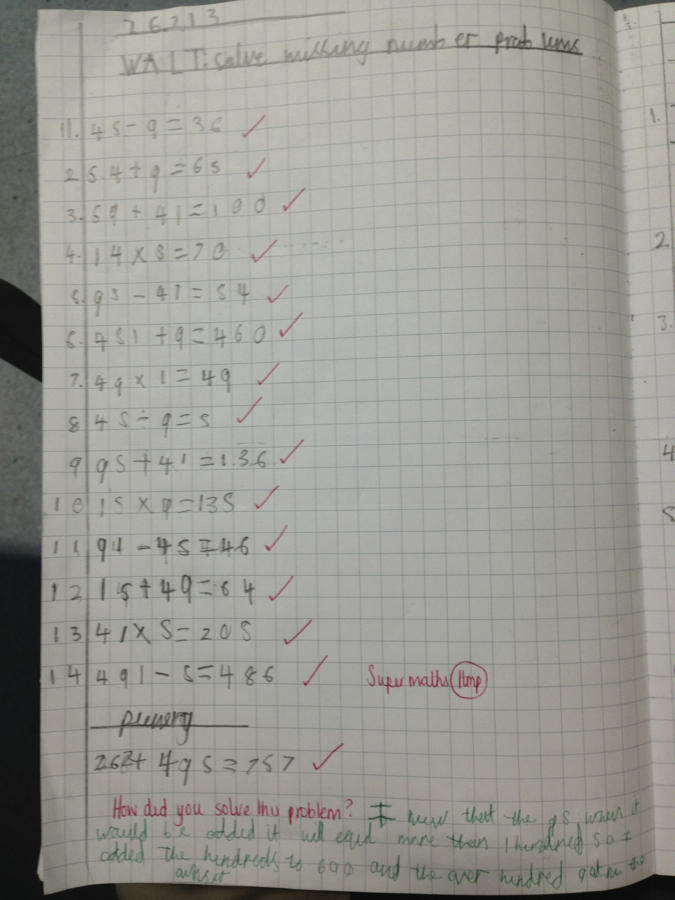 26.2.13
WALT: solve missing number problems
11. 45 - 9 = 36
2 54 + 9 = 63
3. 59 + 41 = 100
4. 14 x 5 = 70
5. 95 - 41 = 54
6. 451 + 9 = 460
7. 49 x 1 = 49
8 45 ÷ 9 = 5
9 95 + 41 = 136
10 15 x 9 = 135
11 91 - 45 = 46
12 15 + 49 = 64
13 41 x 5 = 205
14 491 - 5 = 486
Super maths 1Hmp
plenery
262 + 495 = 757
How did you solve this problem? I new thert the 95 when it
would be added it will equel more then 1 hundred so I
added the hundreds to 600 and the over hundred got me the
anser
1.
2
3.
4
5